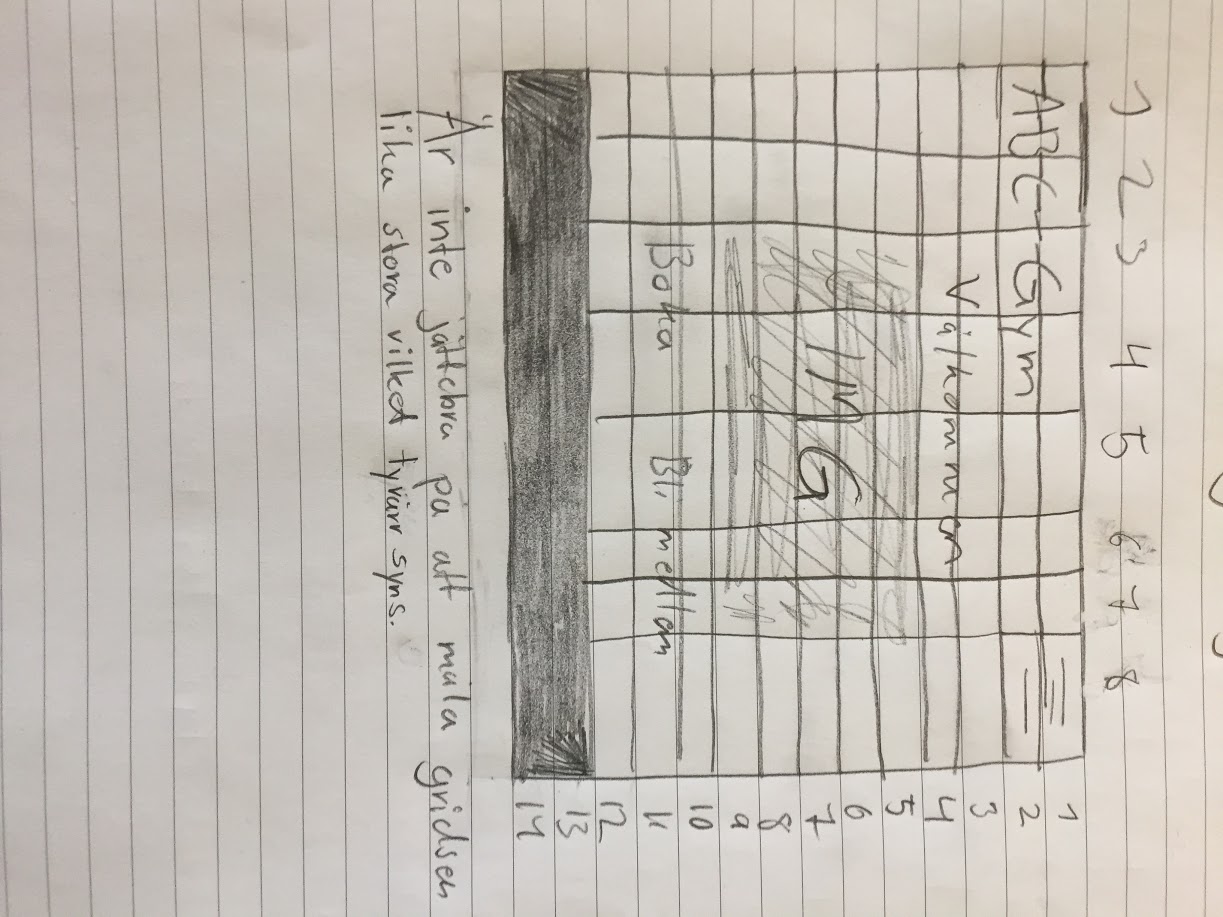 1 2 3 4 5 6 7 8
1
ABC-Gym
2
3
Välkommen
4
5
6
IMG
7
8
9
10
Boka Bli medlem
11
12
13
14
Är inte jättebra på att måla gridsen
lika stora vilket tyvärr syns.